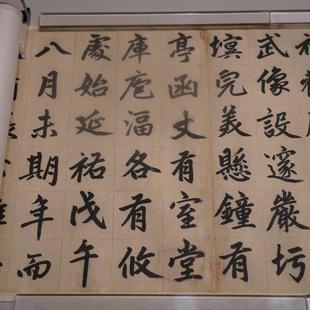 武像設邃嚴圬
塓完美懸鐘有
亭函丈有室堂
庫庖湢各有攸
處始延祐戊午
八月未期年而